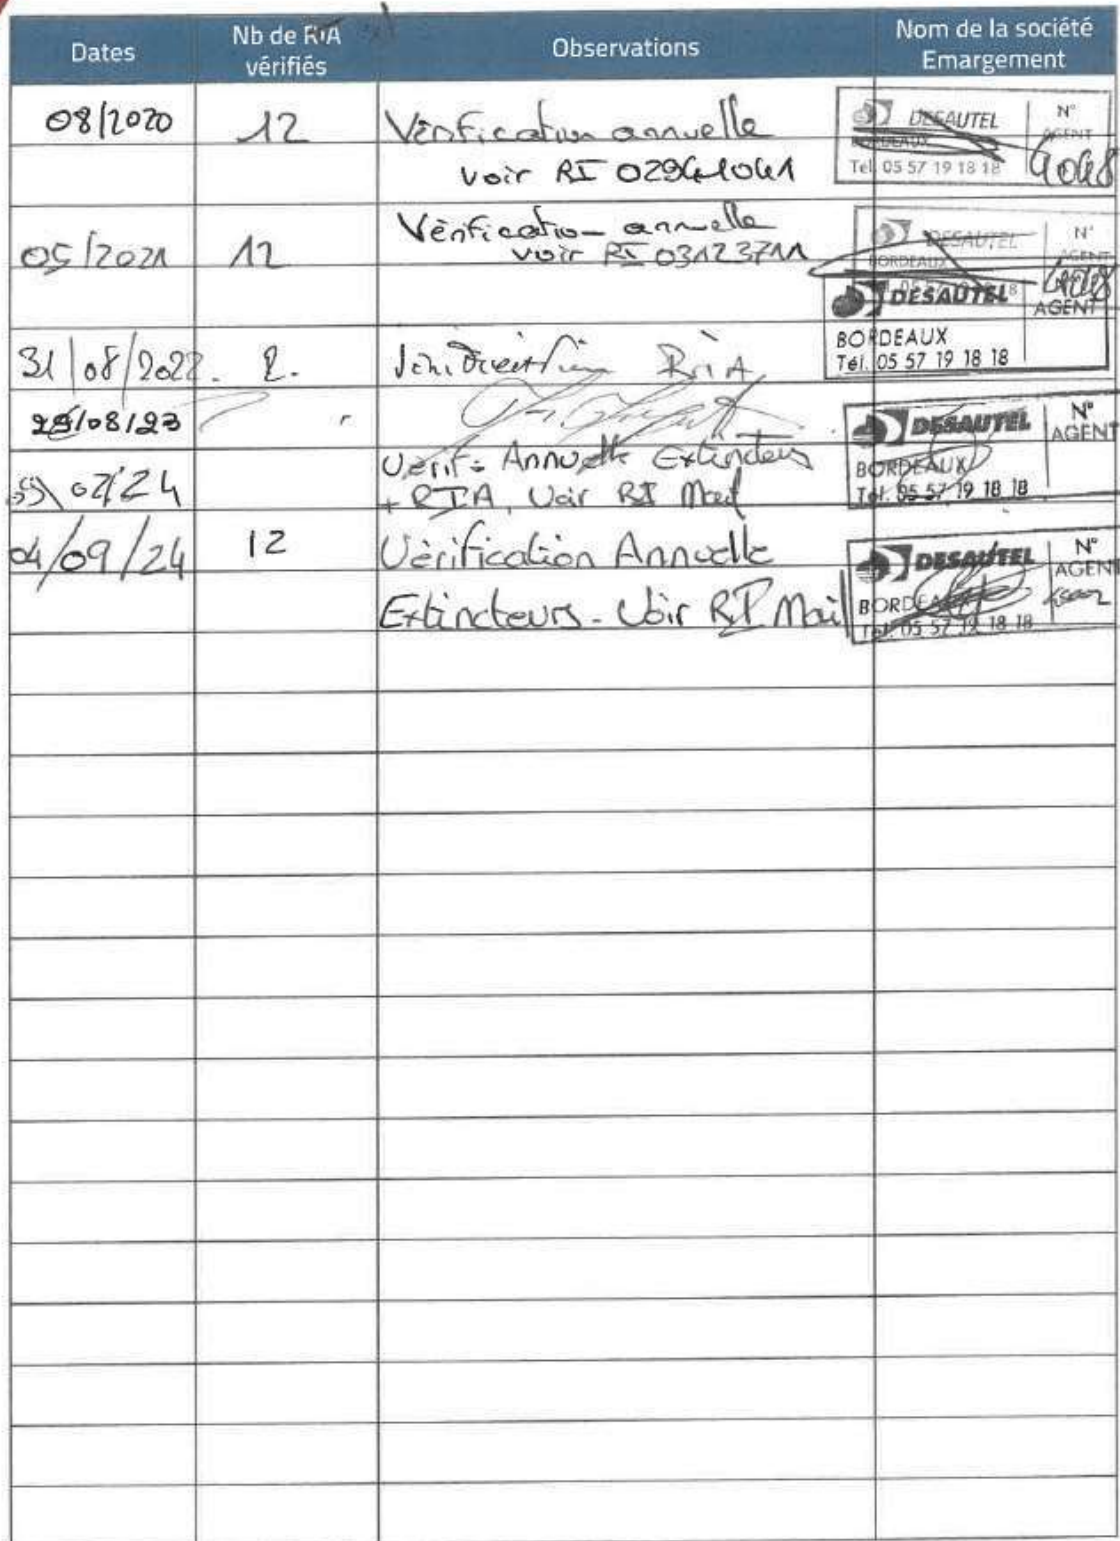 Dates
Nb de RIA
vérifiés
Observations
Nom de la société
Emargement
08/2020
12
Vérification annuelle
voir RI
DESAUTEL
BORDEAUX
Tél. 05 57 19 18 18
N°
AGENT
05/2021
12
Vérification annuelle
voir RI 03123711
DESAUTEL
BORDEAUX
N°
AGENT
DESAUTEL
AGENT
BORDEAUX
Tél. 05 57 19 18 18
31/08/2022.
2.
RIA
/08/23
DESAUTEL
N°
AGENT
BORDEAUX
Tél. 05 57 19 18 18
02/24
Vérif- Annuelle Extincteurs
+ RIA, Voir RI Mail
04/09/24
12
Vérification Annuelle
Extincteurs - Voir RI Mail
DESAUTEL
N°
AGENT
BORDEAUX
Tél. 05 57 19 18 18